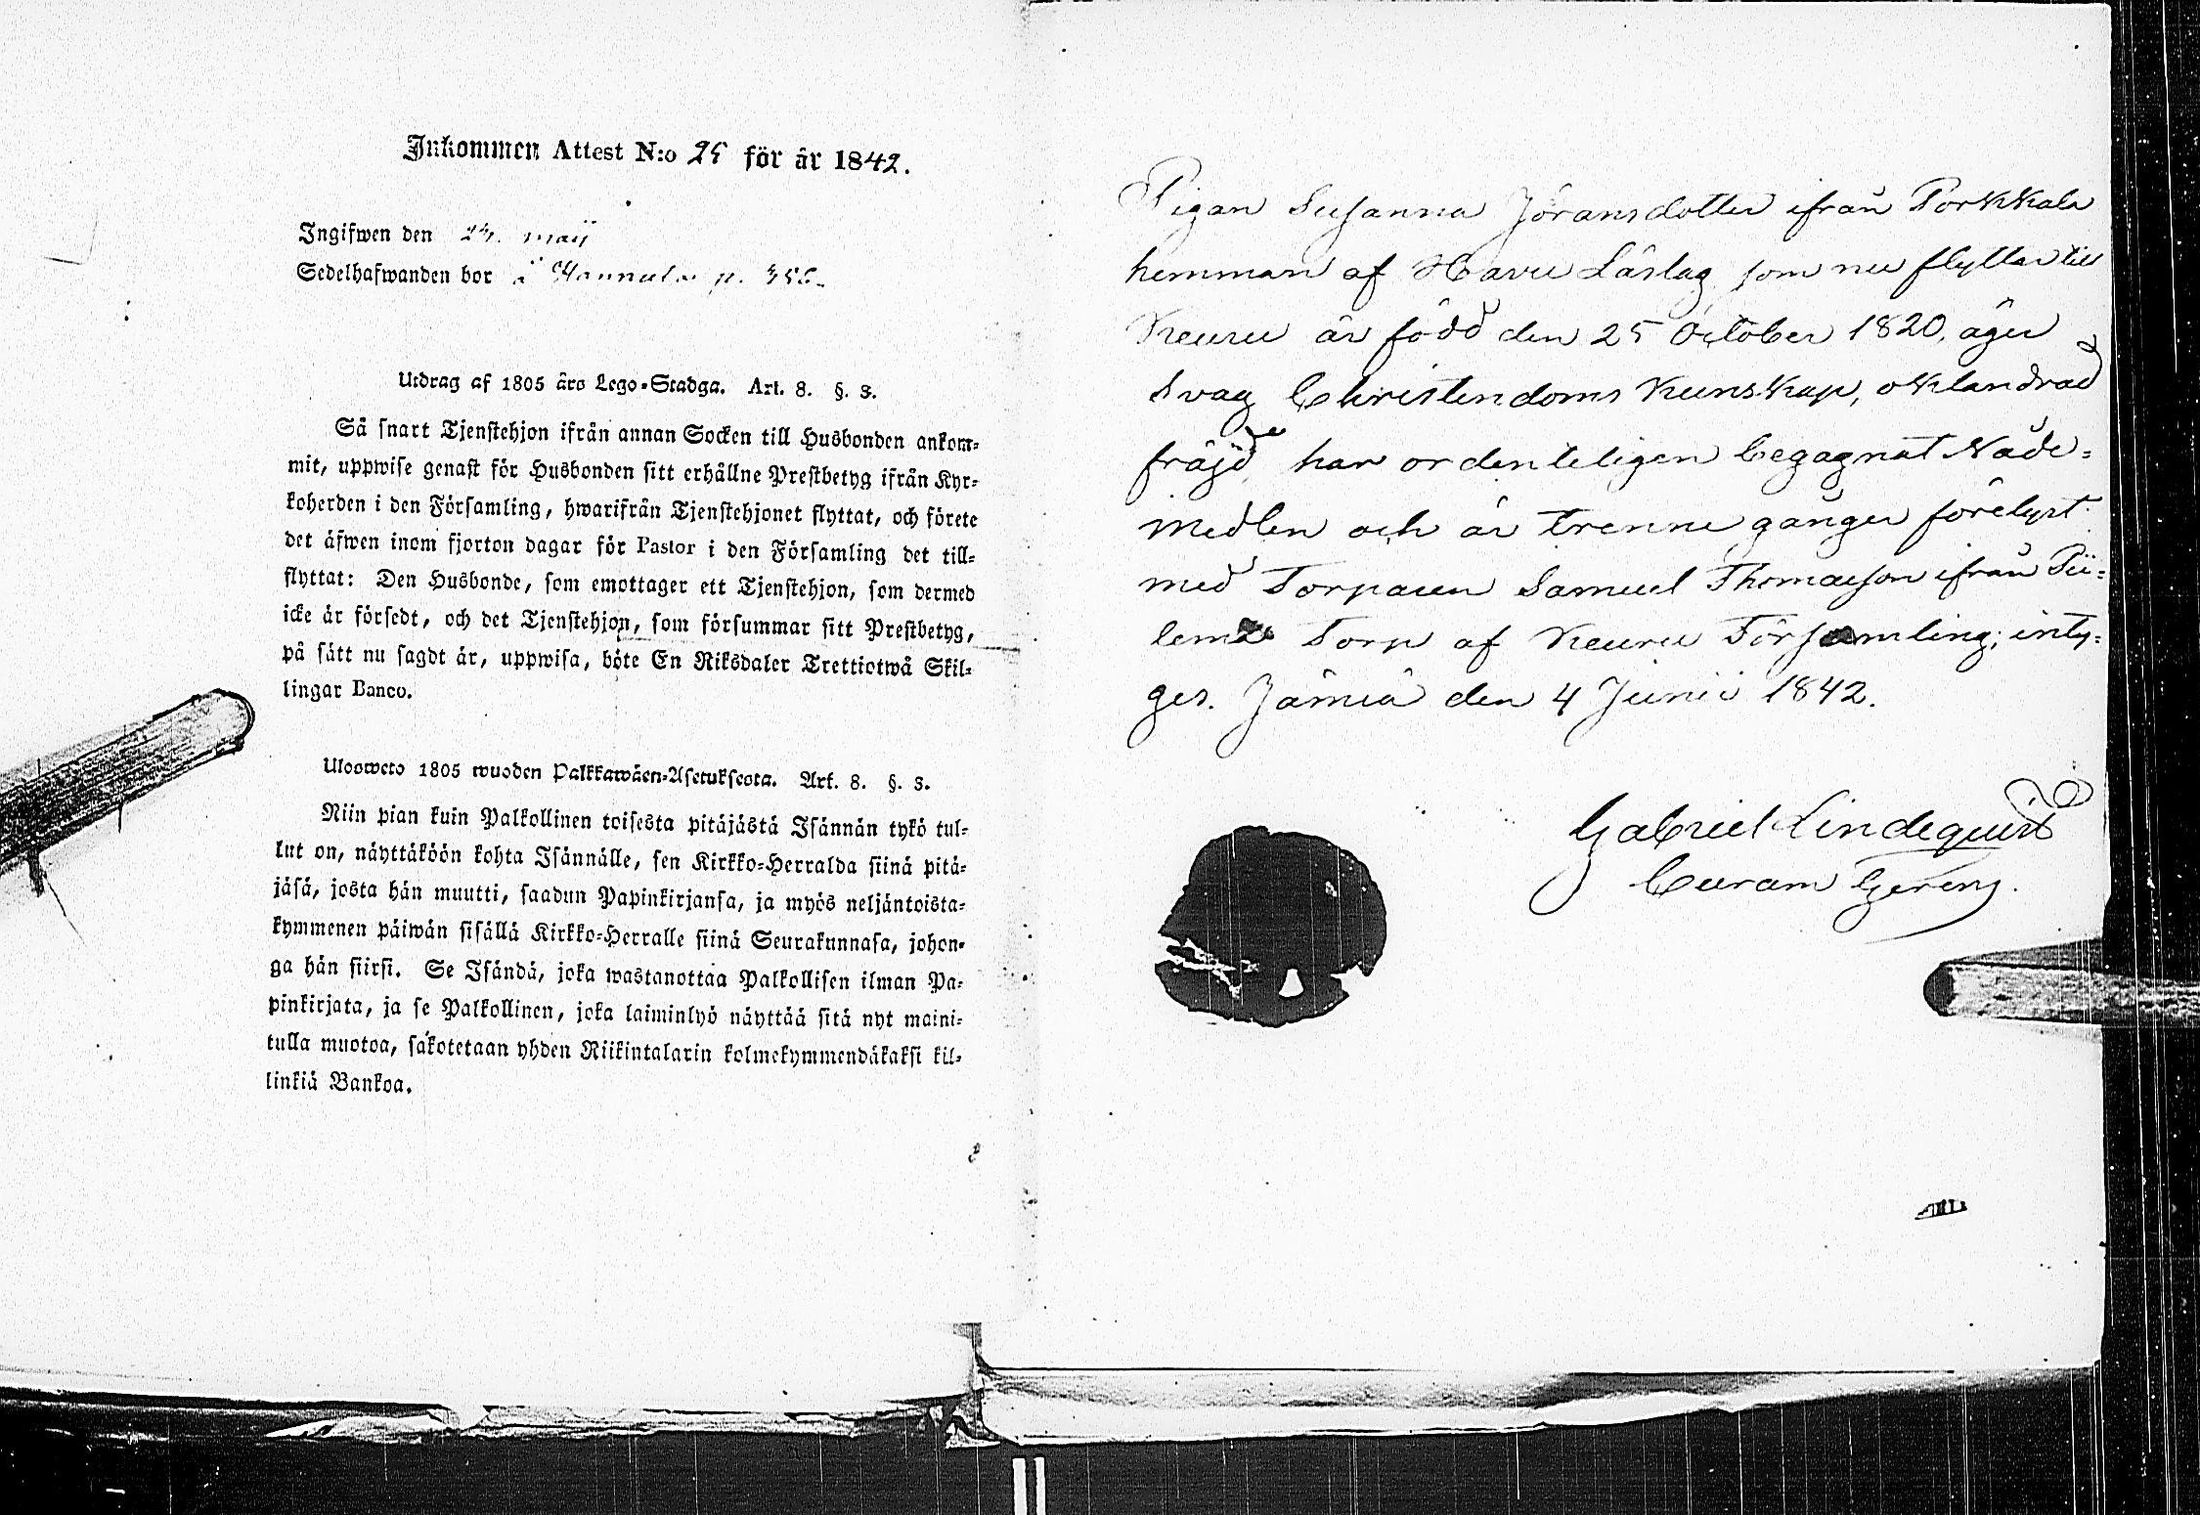 Inkommen Attest N:o 25 för år 1842.
Ingifwen den 24. maij
Sedelhafwanden bor å Hannula p. 356.
Utdrag af 1805 års Lego-Stadga. Art. 8. §. 3.
Så snart Tjenstehjon ifrån annan Socken till Husbonden ankom-
mit, uppwise genast för Husbonden sitt erhållne Prestbetyg ifrån Kyr-
koherden i den Församling, hwarifrån Tjenstehjonet flyttat, och förete
det äfwen inom fjorton dagar för Pastor i den Församling det till-
flyttat: Den Husbonde, som emottager ett Tjenstehjon, som dermed
icke är försedt, och det Tjenstehjon, som försummar sitt Prestbetyg,
på sätt nu sagdt är, uppwisa, böte En Riksdaler Trettiotwå Skil-
lingar Banco.
Ulosweto 1805 wuoden Palkkawäen-Asetuksesta. Art. 8. §. 3.
Niin pian kuin Palkollinen toisesta pitäjästä Isännän tykö tul-
lut on, näyttäköön kohta Isännälle, sen Kirkko-Herralda siinä pitä-
jäsä, josta hän muutti, saadun Papinkirjansa, ja myös neljäntoista-
kymmenen päiwän sisällä Kirkko-Herralle siinä Seurakunnasa, johon-
ga hän siirsi. Se Isändä, joka wastanottaa Palkollisen ilman Pa-
pinkirjata, ja se Palkollinen, joka laiminlyö näyttää sitä nyt maini-
tulla muotoa, sakotetaan yhden Riikintalarin kolmekymmendäkaksi kil-
linkiä Bankoa.
Pigan Susanna Jöransdotter ifrån Porkkala
hemman af Havu Låslag som nu flyttar till
Keuru är född den 25 October 1820, äger
svag Christendoms Kunskap, oklandrad
fräjd, har ordenteligen begagnat Nåde-
medlen och är trenne gånger förelyst
med Torparen Samuel Thomasson ifrån Pii-
lemä Torp af Keuru Församling; inty-
ges. Jämsä den 4 Junii 1842.
Gabriel Lindequist
Curam Gerens.